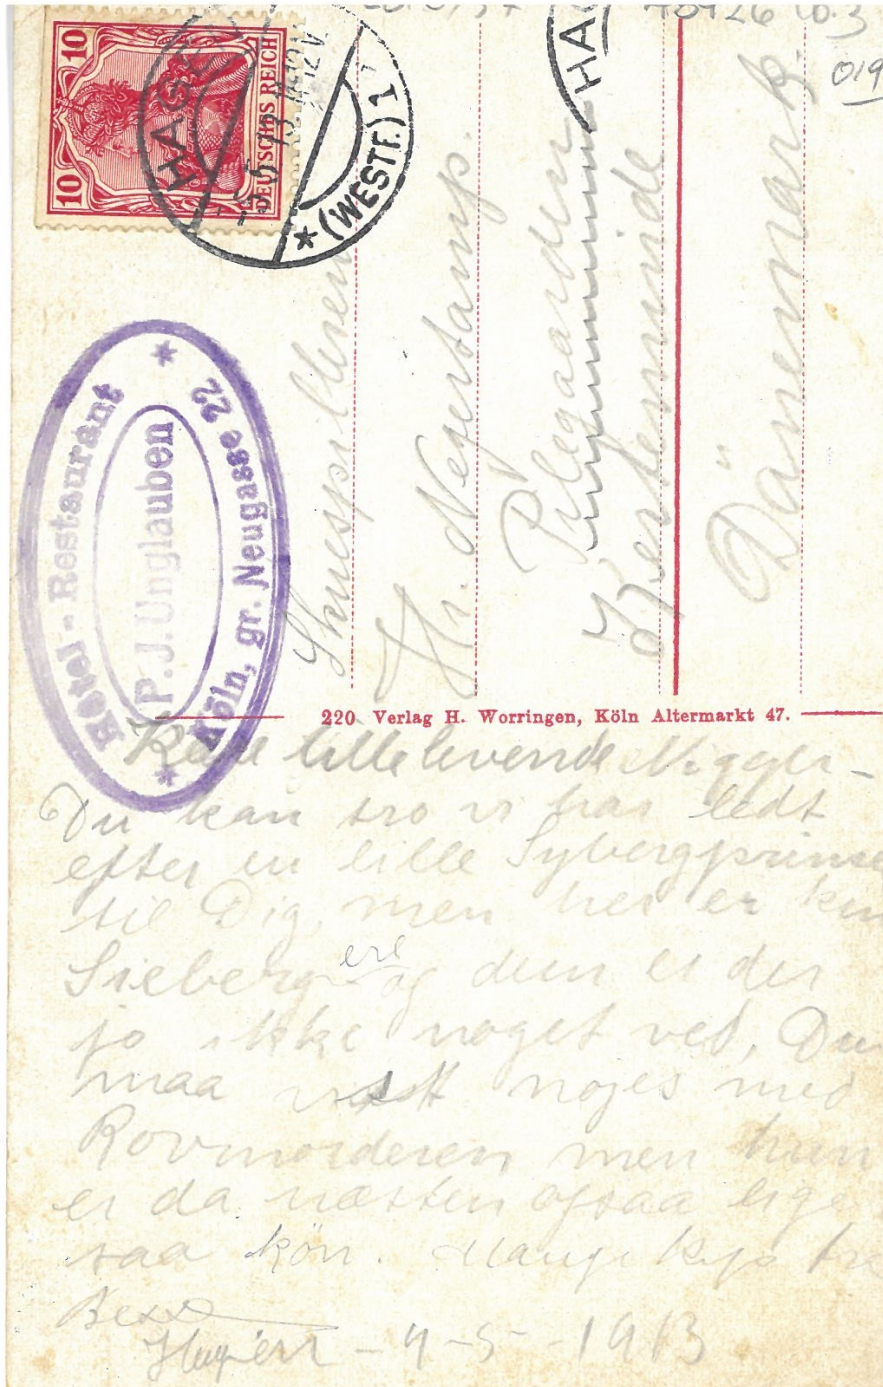 10 10
DEUTSCHES REICH
HAGEN
(WESTF.) 1
Hôtel - Restaurant
P. J. Unglauben
Köln, gr. Neugasse 22
019
Hr.
Pilegaarden
Kerteminde
Dänemark.
220 Verlag H. Worringen, Köln Altermarkt 47.
Kære lille levende
Du kan tro vi har ledt
efter en lille Sybergprinse
til Dig, men her er kun
Siebergere og dem er der
jo ikke noget ved, Du
maa vist nøjes med
Rovmorderen men han
er da næsten ogsaa lige
saa køn. Mange Kys fra
Besse
4-5-1913